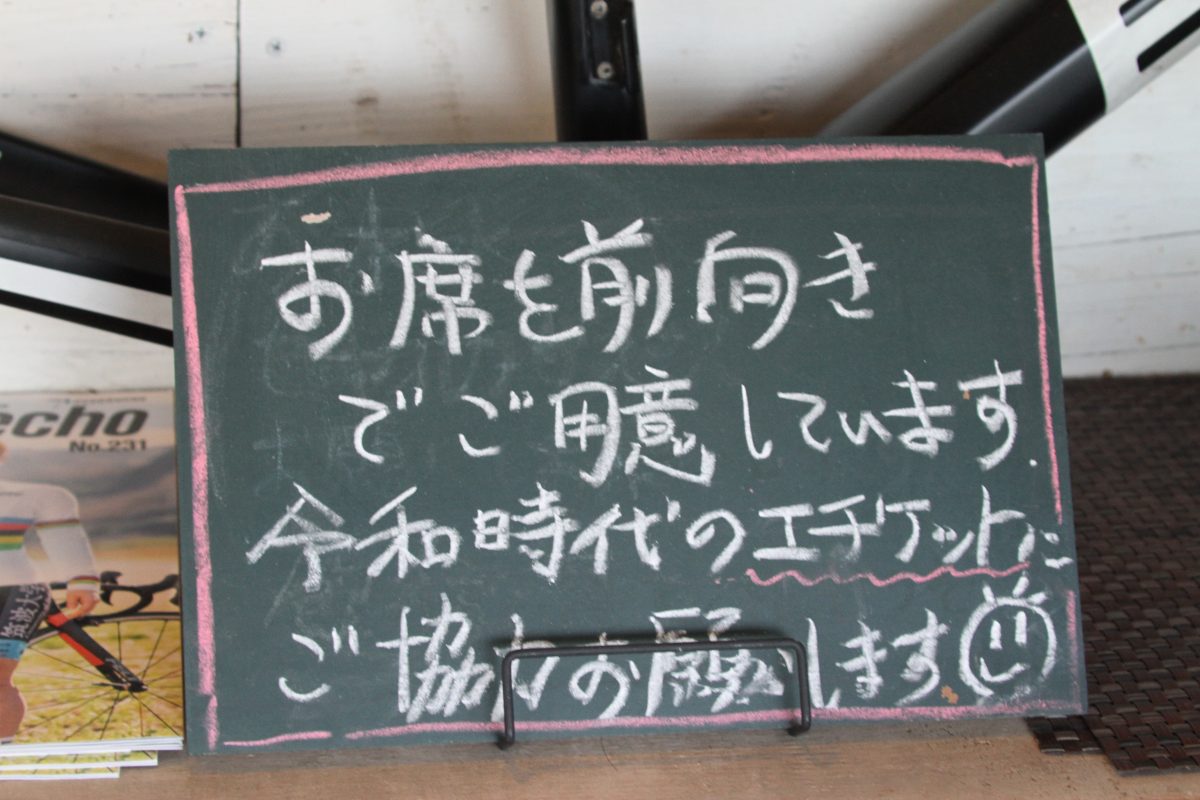 お席を前向き
でご用意しています.
令和時代のエチケットに
ご協力お願いします
echo
No.231
筑波大学